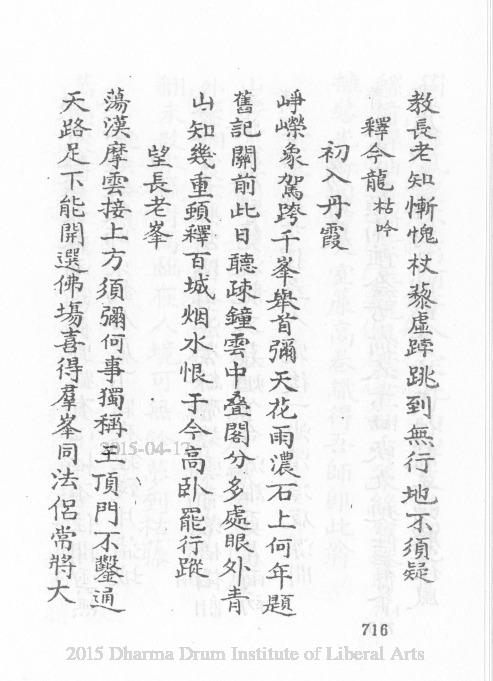 教長老知慚愧杖藜虛踔跳到無行地不須疑
釋今龍枯吟
初入丹霞
崢嶸象駕跨千峯舉首彌天花雨濃石上何年題
舊記關前此日聽疎鐘雲中叠閣分多處眼外青
山知幾重頭釋百城烟水恨于今高卧罷行蹤
望長老峯
蕩漢摩雲接上方須彌何事獨稱王頂門不鑿通
天路足下能開選佛場喜得羣峯同法侶常將大
716
2015-04-17
2015 Dharma Drum Institute of Liberal Arts